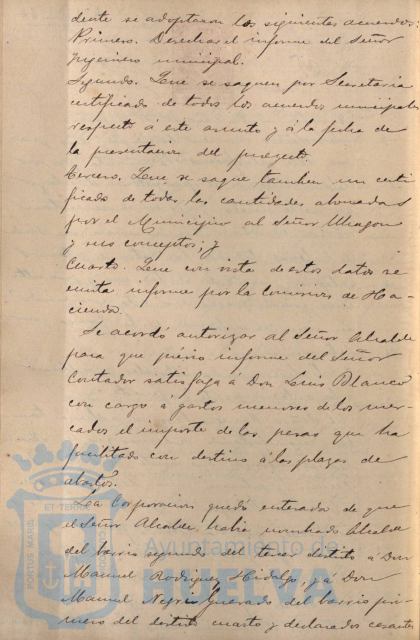 dente se adoptaron los siguientes acuerdos:
Primero. Desechar el informe del Señor
Ingeniero municipal.
Segundo. Que se saquen por Secretaria
certificado de todos los acuerdos municipales
respecto á este asunto y á la fecha de
la presentacion del proyecto.
Tercero. Que se saque tambien un certi
ficado de todas las cantidades abonadas
por el Municipio al Señor
y sus conceptos; y
Cuarto. Que con vista de estos datos se
emita informe por la Comision de Ha
cienda.
Se acordó autorizar al Señor Alcalde
para que previo informe del Señor
Contador satisfaga á Don Luis Blanco
con cargo á gastos menores de los mer
cados el importe de las pesas que ha
facilitado con destino á las plazas de
abastos.
La Corporacion quedó enterada de que
el Señor Alcalde, habia nombrado Alcalde
del barrio segundo del tercer distrito á Don
Manuel Rodriguez Hidalgo, y á Don
Manuel Negrin del barrio pri
mero del distrito cuarto y declarados cesantes
PORTUS MARIS
ET TERRAE
Ayuntamiento de
HUELVA